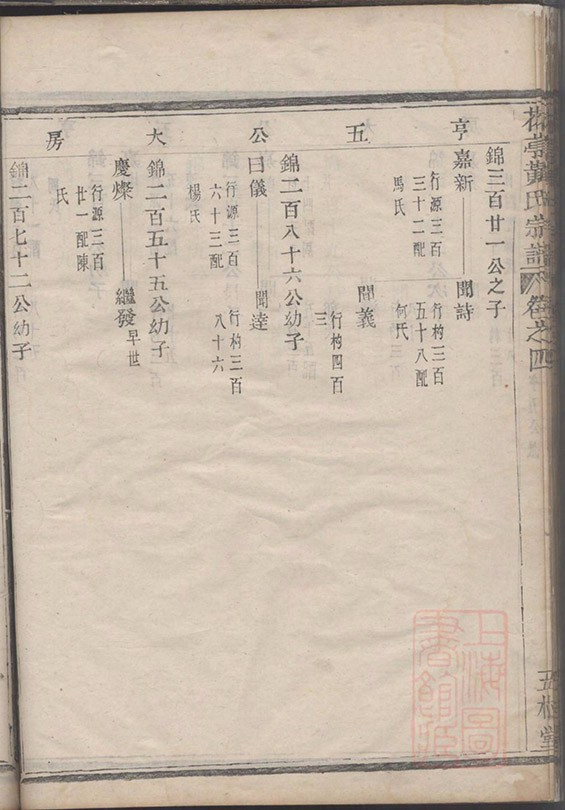 黃氏宗譜 卷之四
亨五公大房
錦三百廿一公之子
嘉新 聞詩
行源三百 行杓三百
三十二配 五十八配
馬氏 何氏
聞義
行杓四百
三
錦二百八十六公幼子
曰儀 聞達
行源三百 行杓三百
六十三配 八十六
楊氏
錦二百五十五公幼子
慶燦 繼發 早世
行源三百
廿一配陳
氏
錦二百七十二公幼子
堂
上海圖書館藏